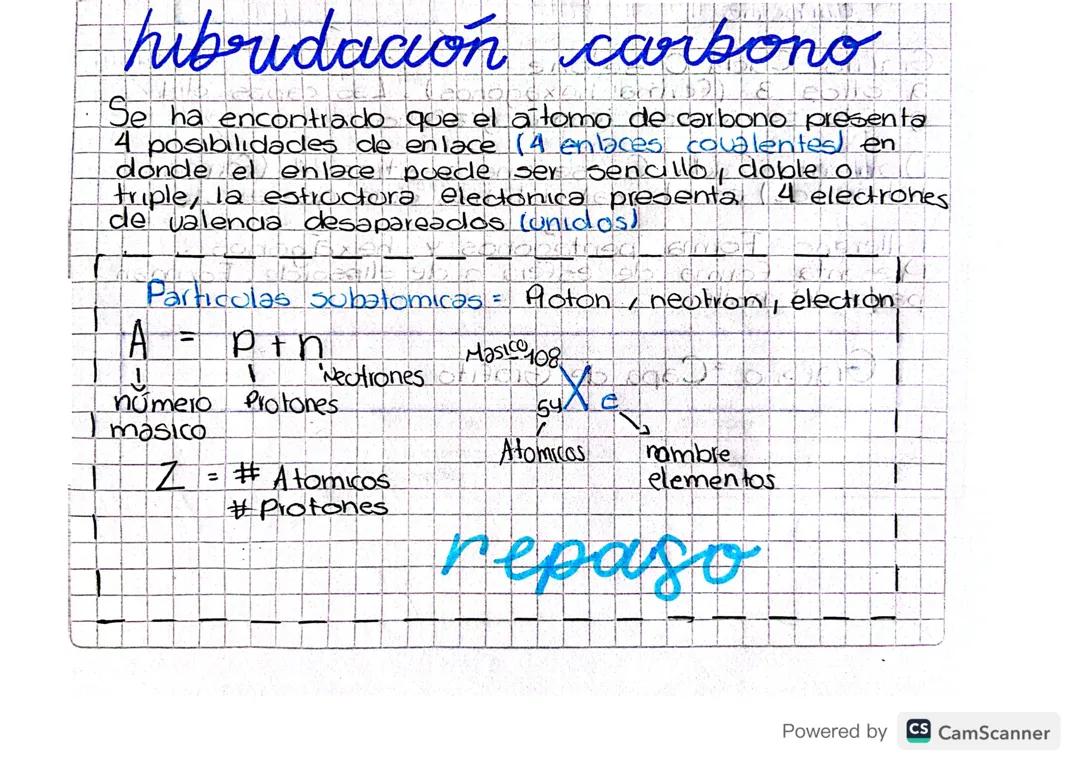 hibridación carbono
Se ha encontrado que el átomo de carbono presenta
4 posibilidades de enlace (4 enlaces covalentes) en
donde el enlace puede ser sencillo, doble o
triple, la estructura electónica presenta 4 electrones
de valencia desapareados (unidos)
Particulas subatomicas = Proton, neutron, electrón
A = p + n
número másico
Protones
Neutrones
Z = # Atomicos
# Protones
Masico 108
54 Xe
Atomicos
nombre
elementos
repaso
Powered by CS CamScanner